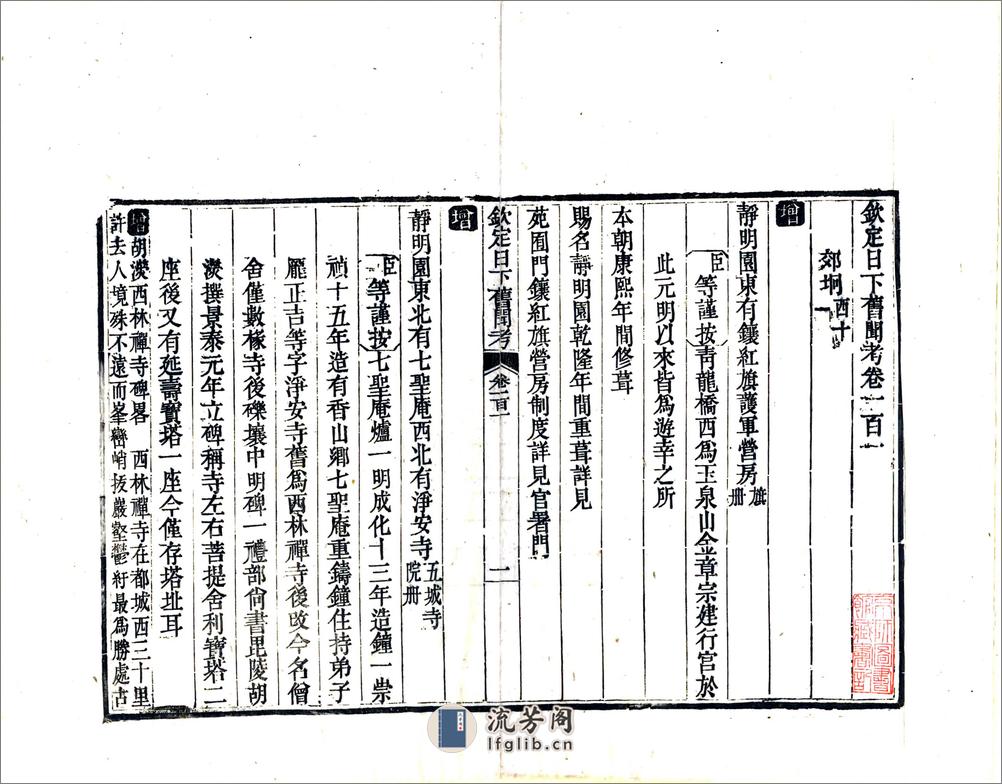 欽定日下舊聞考卷一百一
郊坰 西十一
增
靜明園東有鑲紅旗護軍營房 旗册
臣等謹按靑龍橋西爲玉泉山金章宗建行宮於
此元明以來皆爲遊幸之所
本朝康熙年間修葺
賜名靜明園乾隆年間重葺詳見
苑囿門鑲紅旗營房制度詳見官署門
欽定日下舊聞考 卷一百一 一
增
靜明園東北有七聖庵西北有淨安寺 五城寺院册
臣等謹按七聖庵爐一明成化十三年造鐘一崇
禎十五年造有香山鄉七聖庵重鑄鐘住持弟子
龐正吉等字淨安寺舊爲西林禪寺後改今名僧
舍僅數椽寺後礫壤中明碑一禮部尙書毘陵胡
濙撰景泰元年立碑稱寺左右菩提舍利寶塔二
座後又有延壽寶塔一座今僅存塔址耳
增 胡濙西林禪寺碑畧 西林禪寺在都城西三十里
許去人境殊不遠而峯巒峭拔巖壑鬱紆最爲勝處古
流芳阁
lfglib.cn